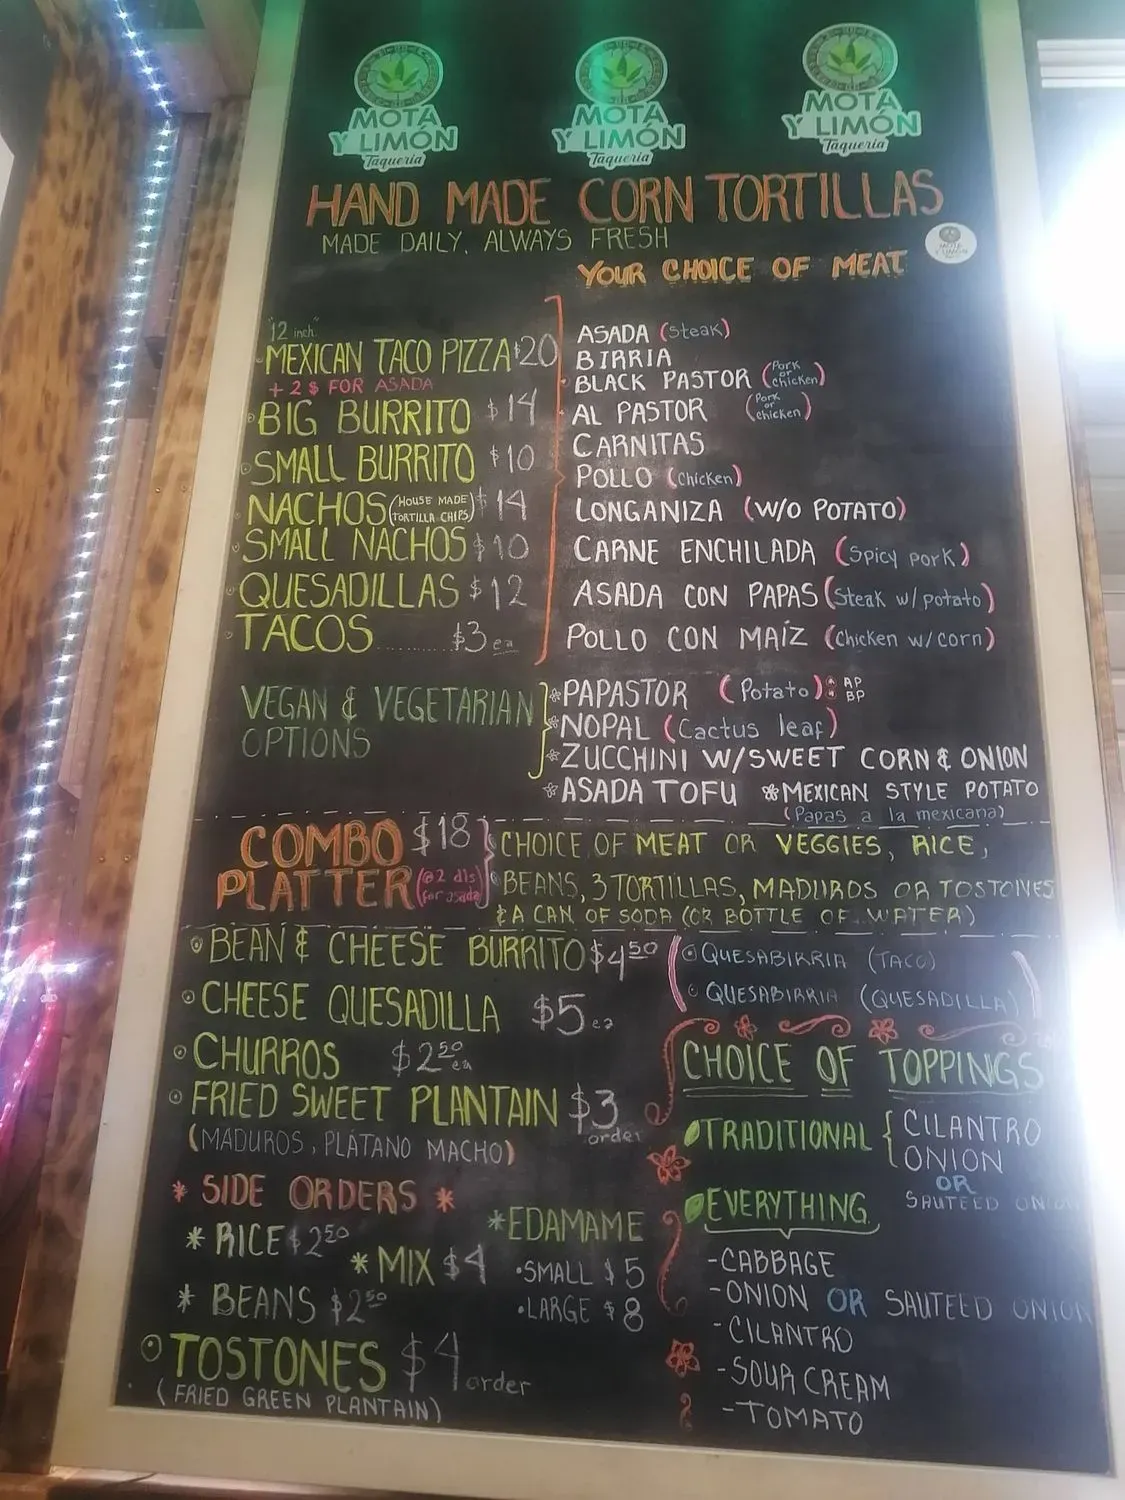 MOTA
Y LIMÓN
Taqueria
MOTA
Y LIMÓN
Taqueria
MOTA
Y LIMÓN
Taqueria
HAND MADE CORN TORTILLAS
MADE DAILY, ALWAYS FRESH
YOUR CHOICE OF MEAT
"12 inch"
MEXICAN TACO PIZZA $20
+ 2 $ FOR ASADA
BIG BURRITO $14
SMALL BURRITO $10
NACHOS (HOUSE MADE TORTILLA CHIPS) $14
SMALL NACHOS $10
QUESADILLAS $12
TACOS.......... $3 ea
ASADA (Steak)
BIRRIA
BLACK PASTOR (Pork or chicken)
AL PASTOR (Pork or chicken)
CARNITAS
POLLO (Chicken)
LONGANIZA (W/O POTATO)
CARNE ENCHILADA (Spicy pork)
ASADA CON PAPAS (Steak w/ potato)
POLLO CON MAÍZ (Chicken w/ corn)
VEGAN & VEGETARIAN
OPTIONS
PAPASTOR (Potato) AP BP
NOPAL (Cactus leaf)
ZUCCHINI W/SWEET CORN & ONION
ASADA TOFU * MEXICAN STYLE POTATO
(Papas a la mexicana)
COMBO $18
PLATTER (@2 dls for asada)
CHOICE OF MEAT OR VEGGIES, RICE,
BEANS, 3 TORTILLAS, MADUROS OR TOSTONES
& A CAN OF SODA (OR BOTTLE OF WATER)
BEAN & CHEESE BURRITO $4.50
CHEESE QUESADILLA $5 ea
CHURROS $2.50 ea
FRIED SWEET PLANTAIN $3 order
(MADUROS, PLÁTANO MACHO)
* SIDE ORDERS *
* RICE $2.50
* MIX $4
* BEANS $2.50
* EDAMAME
• SMALL $5
• LARGE $8
TOSTONES $4 order
(FRIED GREEN PLANTAIN)
QUESABIRRIA (TACO)
QUESABIRRIA (QUESADILLA)
CHOICE OF TOPPINGS
TRADITIONAL { CILANTRO
ONION
OR
SAUTEED ONION
EVERYTHING
-CABBAGE
-ONION OR SAUTEED ONION
-CILANTRO
-SOUR CREAM
-TOMATO